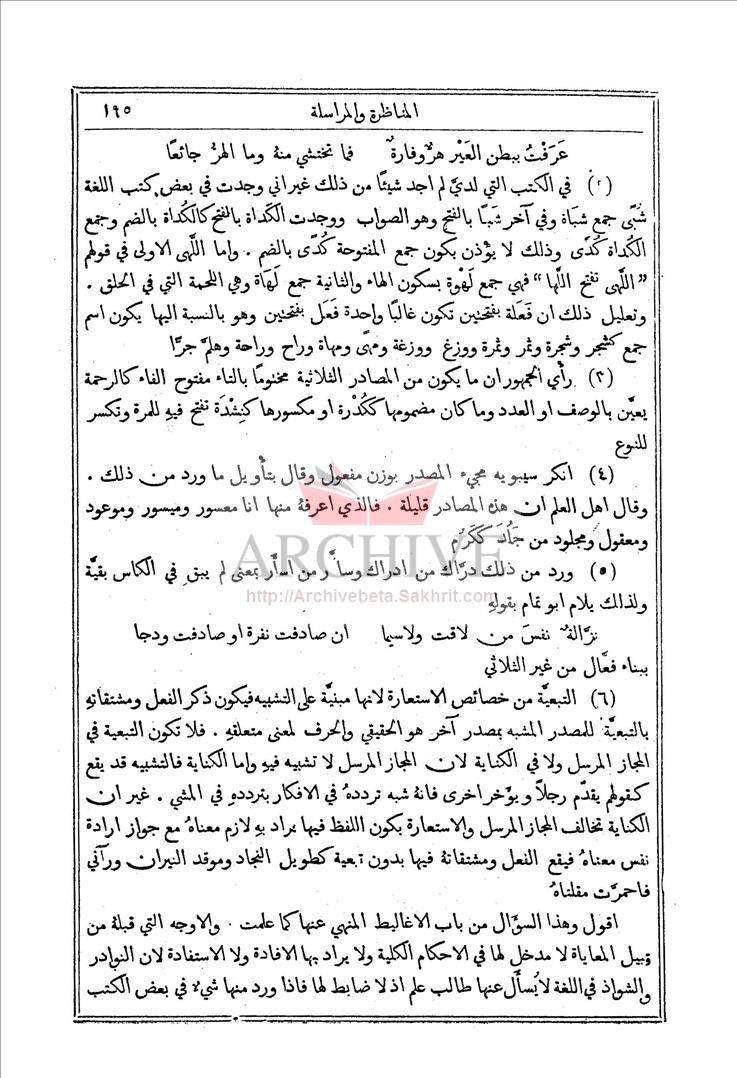 المناظرة والمراسلة ١٩٥
عَرَفْتُ ببطن العَيْر هرٌّ وفارةٌ فما تختشي منهُ وما الهرُّ جائعًا
(٢) في الكتب التي لديَّ لم اجد شيئًا من ذلك غير اني وجدت في بعض كتب اللغة
شَبًى جمع شباة وفي آخر شَبَا بالفتح وهو الصواب ووجدت الكَداة بالفتح كالكُداة بالضم وجمع
الكُداة كُدًى وذلك لا يؤذن بكون جمع المفتوحة كُدًى بالضم . واما اللُّهى الاولى في قولهم
”اللُّهى تفتح اللَّها“ فهي جمع لَهْوة بسكون الهاء والثانية جمع لَهَاة وهي اللحمة التي في الحلق .
وتعليل ذلك ان فَعَلة بفتحتين تكون غالبًا واحدة فَعَل بفتحتين وهو بالنسبة اليها يكون اسم
جمع كشجر وشجرة وثمر وثمرة ووزغ ووزغة ومهًى ومهاة وراح وراحة وهلمَّ جرًّا
(٣) رأي الجمهور ان ما يكون من المصادر الثلاثية مختومًا بالتاء مفتوح الفاء كالرحمة
يعيَّن بالوصف او العدد وما كان مضمومها ككُدْرة او مكسورها كنِشْدَة تفتح فيهِ للمرة وتكسر
للنوع
(٤) انكر سيبويه مجيء المصدر بوزن مفعول وقال بتأويل ما ورد من ذلك .
وقال اهل العلم ان هذه المصادر قليلة . فالذي اعرفهُ منها انا معسور وميسور وموعود
ومعقول ومجلود من جَلُدَ ككَرُم
ARCHIVE
(٥) ورد من ذلك درَّاك من ادراك وسأَّر من اسأَر بمعنى لم يبقِ في الكاس بقيَّة
http://Archivebeta.Sakhrit.com
ولذلك يلام ابو تمام بقولهِ
نزَّالةٌ نفسَ من لاقت ولاسيما ان صادفت نفرة او صادفت ودجا
ببناء فعَّال من غير الثلاثي
(٦) التبعيَّة من خصائص الاستعارة لانها مبنيَّة على التشبيه فيكون ذكر الفعل ومشتقاتهِ
بالتبعيَّة للمصدر المشبه بمصدر آخر هو الحقيقي والحرف لمعنى متعلقهِ . فلا تكون التبعية في
المجاز المرسل ولا في الكناية لان المجاز المرسل لا تشبيه فيهِ واما الكناية فالتشبيه قد يقع
كقولهم يقدّم رجلاً ويؤخر اخرى فانهُ شبه ترددهُ في الافكار بترددهِ في المشي . غير ان
الكناية تخالف المجاز المرسل والاستعارة بكون اللفظ فيها يراد بهِ لازم معناهُ مع جواز ارادة
نفس معناهُ فيقع الفعل ومشتقاتهُ فيها بدون تبعية كطويل النجاد وموقد النيران ورآني
فاحمرَّت مقلتاهُ
اقول وهذا السؤال من باب الاغاليط المنهي عنها كما علمت . والاوجه التي قبلهُ من
قبيل المعاياة لا مدخل لها في الاحكام الكلية ولا يراد بها الافادة ولا الاستفادة لان النوادر
والشواذ في اللغة لا يُسأَل عنها طالب علم اذ لا ضابط لها فاذا ورد منها شيءٌ في بعض الكتب